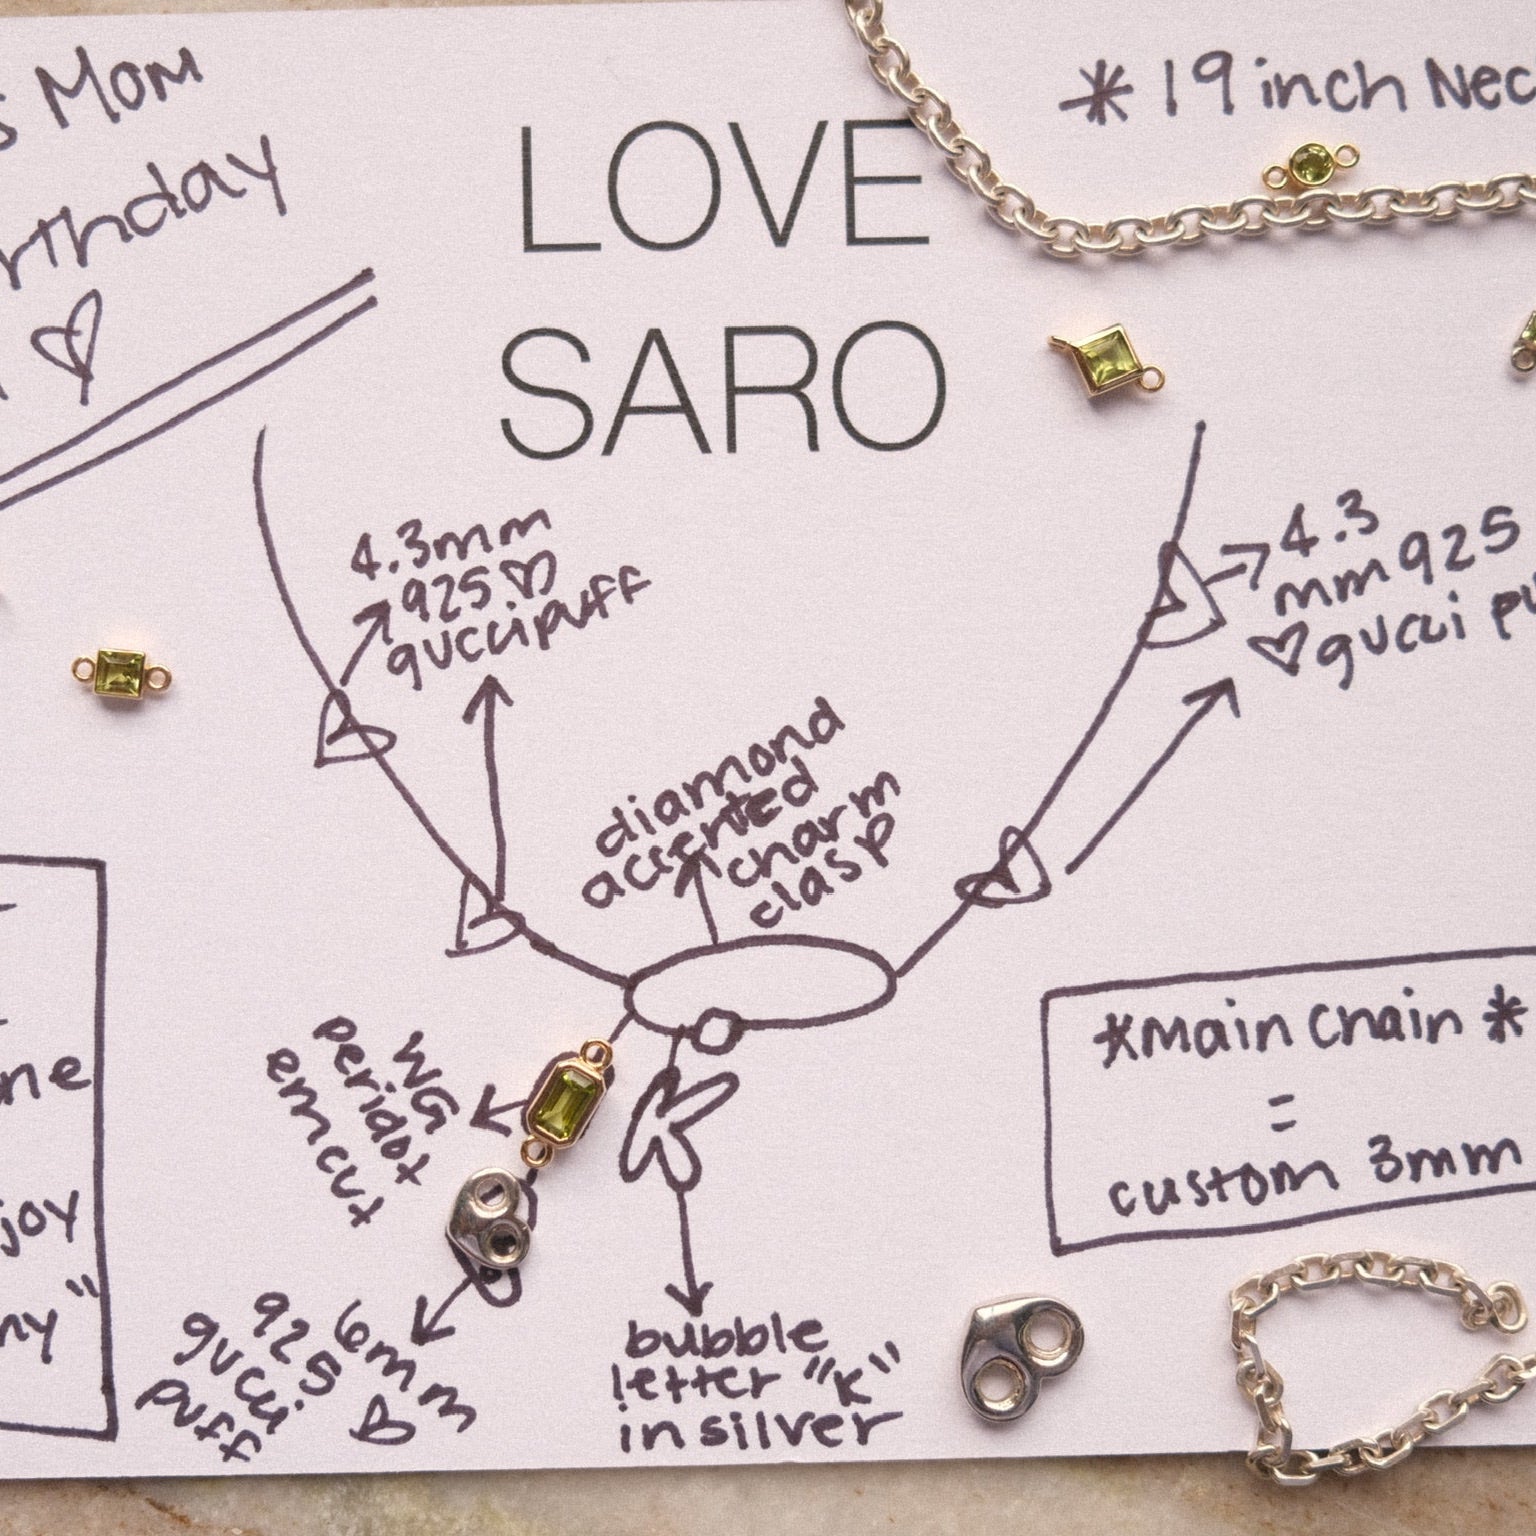 Mom
LOVE
SARO
* 19 inch
♡
4.3mm
925 ♡
gucci puff
4.3
mm 925
♡ gucci
diamond
accented
charm
clasp
WG
peridot
em cut
joy
* Main Chain *
=
custom 3mm
6mm ♡
925
gucci
puff
bubble
letter "K"
in silver